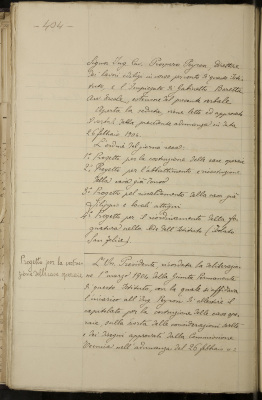 - 434 -
Signor Ing. Cav. Prospero Peyron, Direttore
dei lavori edilizi in corso per conto di questo Isti-
tuto, e l'Impiegato di Gabinetto Beretta
Avv. Ercole, estensore del presente verbale.
Aperta la seduta, viene letto ed approvato
il verbale della precedente adunanza in data
26 febbraio 1904.
L'ordine del giorno reca:
1° Progetto per la costruzione delle case operaie
2° Progetto per l'abbattimento e ricostruzione
della casa già
3° Progetto pel della casa già
e locali attigui
4° Progetto per il riordinamento della fo-
gnatura nella Sede dell'Istituto (Isolato
San Felice).
Progetto per la costru-
zione delle case operaie
L'On. Presidente ricordata la deliberazio-
ne 1° marzo 1904 della Giunta Permanente
di questo Istituto, con la quale si affidava
l'incarico all'Ing. Peyron di allestire il
capitolato per la costruzione delle case ope-
raie, sulla scorta delle considerazioni svolte
e dei disegni approvati dalla Commissione
Tecnica nell'adunanza del 26 febbraio u.s.